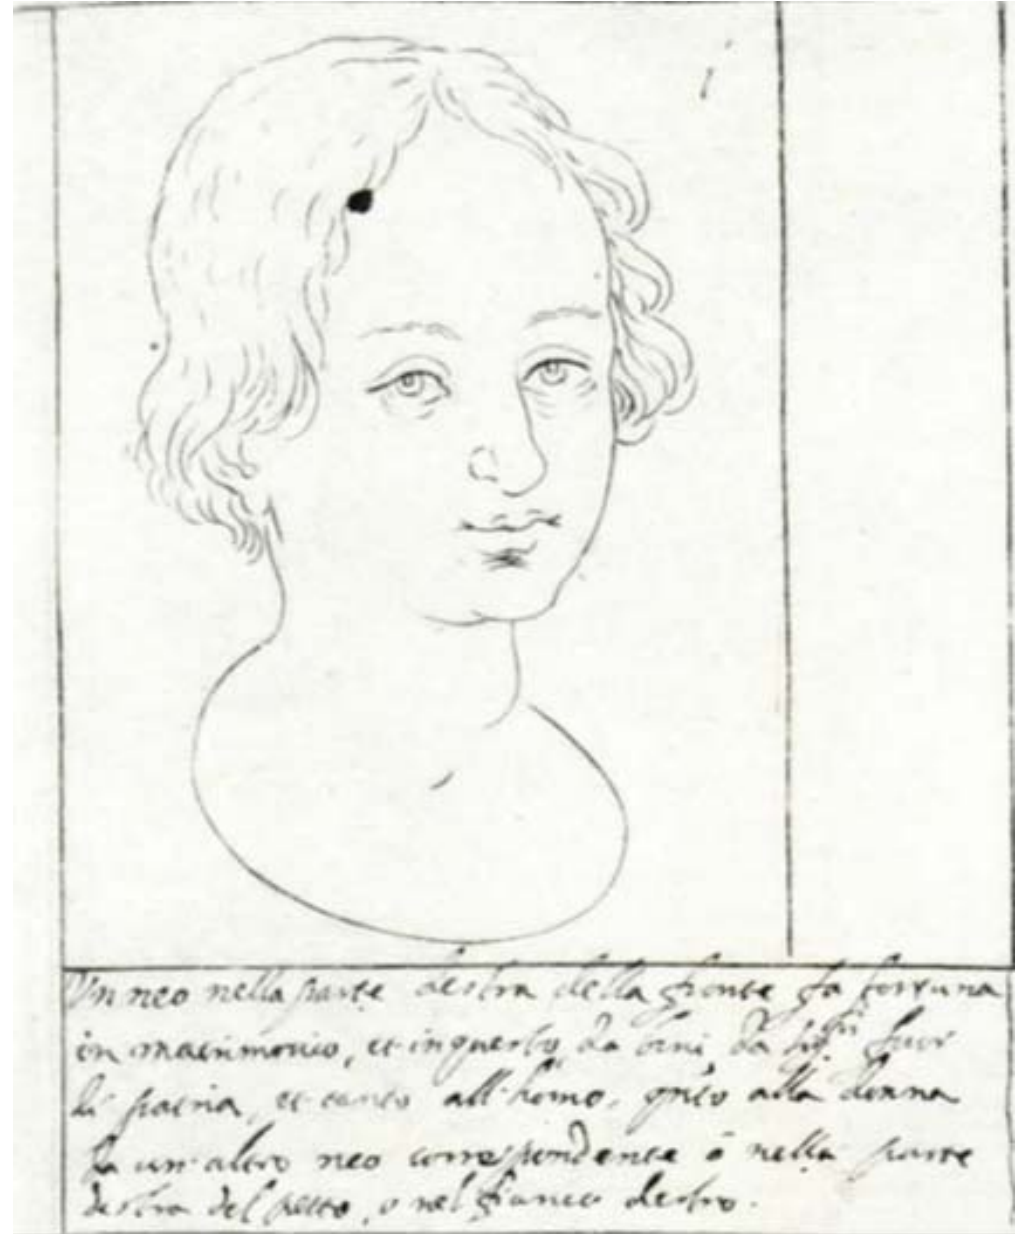 1
Un neo nella parte destra della fronte fa fortuna
in matrimonio, et in questo, da beni, da sig.ri fuor
di patria, et tanto all'homo, q.to alla donna
ha un'altro neo correspondente ò nella parte
destra del petto, o nel fianco destro.